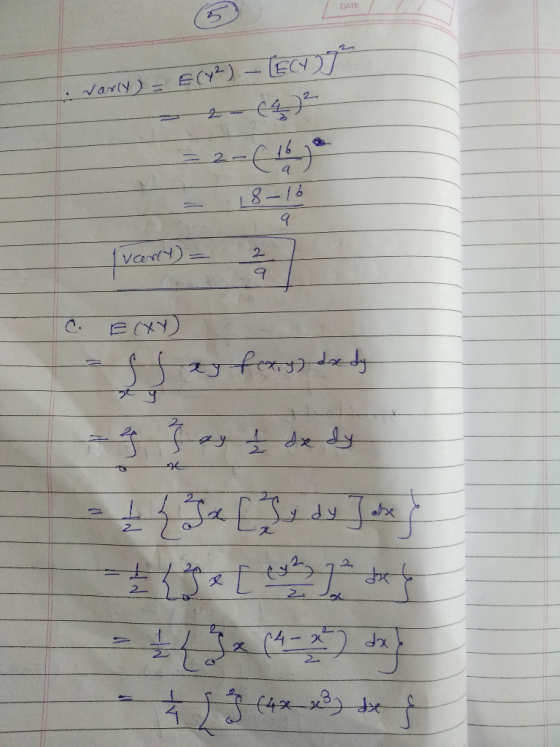 5
DATE
∴ Var(Y) = E(Y²) - [E(Y)]²
= 2 - (4/3)²
= 2 - (16/9)
= 18-16/9
Var(Y) = 2/9
C. E(XY)
= ∫x ∫y xy f(x,y) dx dy
= ∫₀² ∫ₓ² xy 1/2 dx dy
= 1/2 { ∫₀² x [ ∫ₓ² y dy ] dx }
= 1/2 { ∫₀² x [ (y²)/2 ]ₓ² dx }
= 1/2 { ∫₀² x (4-x²/2) dx }
= 1/4 [ ∫₀² (4x-x³) dx }